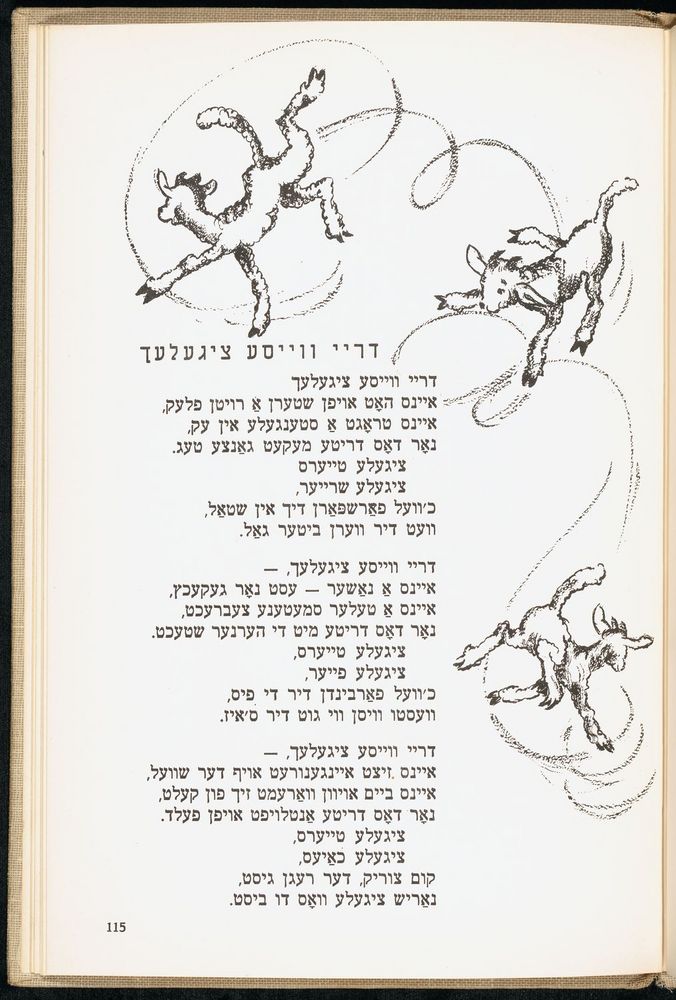 דריי ווייסע ציגעלעך
דריי ווייסע ציגעלעך
איינס האָט אויפן שטערן אַ רויטן פלעק,
איינס טראָגט אַ סטענגעלע אין עק,
נאָר דאָס דריטע מעקעט גאַנצע טעג.
ציגעלע טייערס
ציגעלע שרייער,
כ׳וועל פאַרשפּאַרן דיך אין שטאַל,
וועט דיר ווערן ביטער גאַל.
דריי ווייסע ציגעלעך, —
איינס אַ נאַשער — עסט נאָר געקעכץ,
איינס אַ טעלער סמעטענע צעברעכט,
נאָר דאָס דריטע מיט די הערנער שטעכט.
ציגעלע טייערס,
ציגעלע פייער,
כ׳וועל פאַרבינדן דיר די פיס,
וועסטו וויסן ווי גוט דיר ס׳איז.
דריי ווייסע ציגעלעך, —
איינס זיצט איינגענורעט אויף דער שוועל,
איינס ביים אויוון וואַרעמט זיך פון קעלט,
נאָר דאָס דריטע אַנטלויפט אויפן פעלד.
ציגעלע טייערס,
ציגעלע כאַיעס,
קום צוריק, דער רעגן גיסט,
נאַריש ציגעלע וואָס דו ביסט.
115